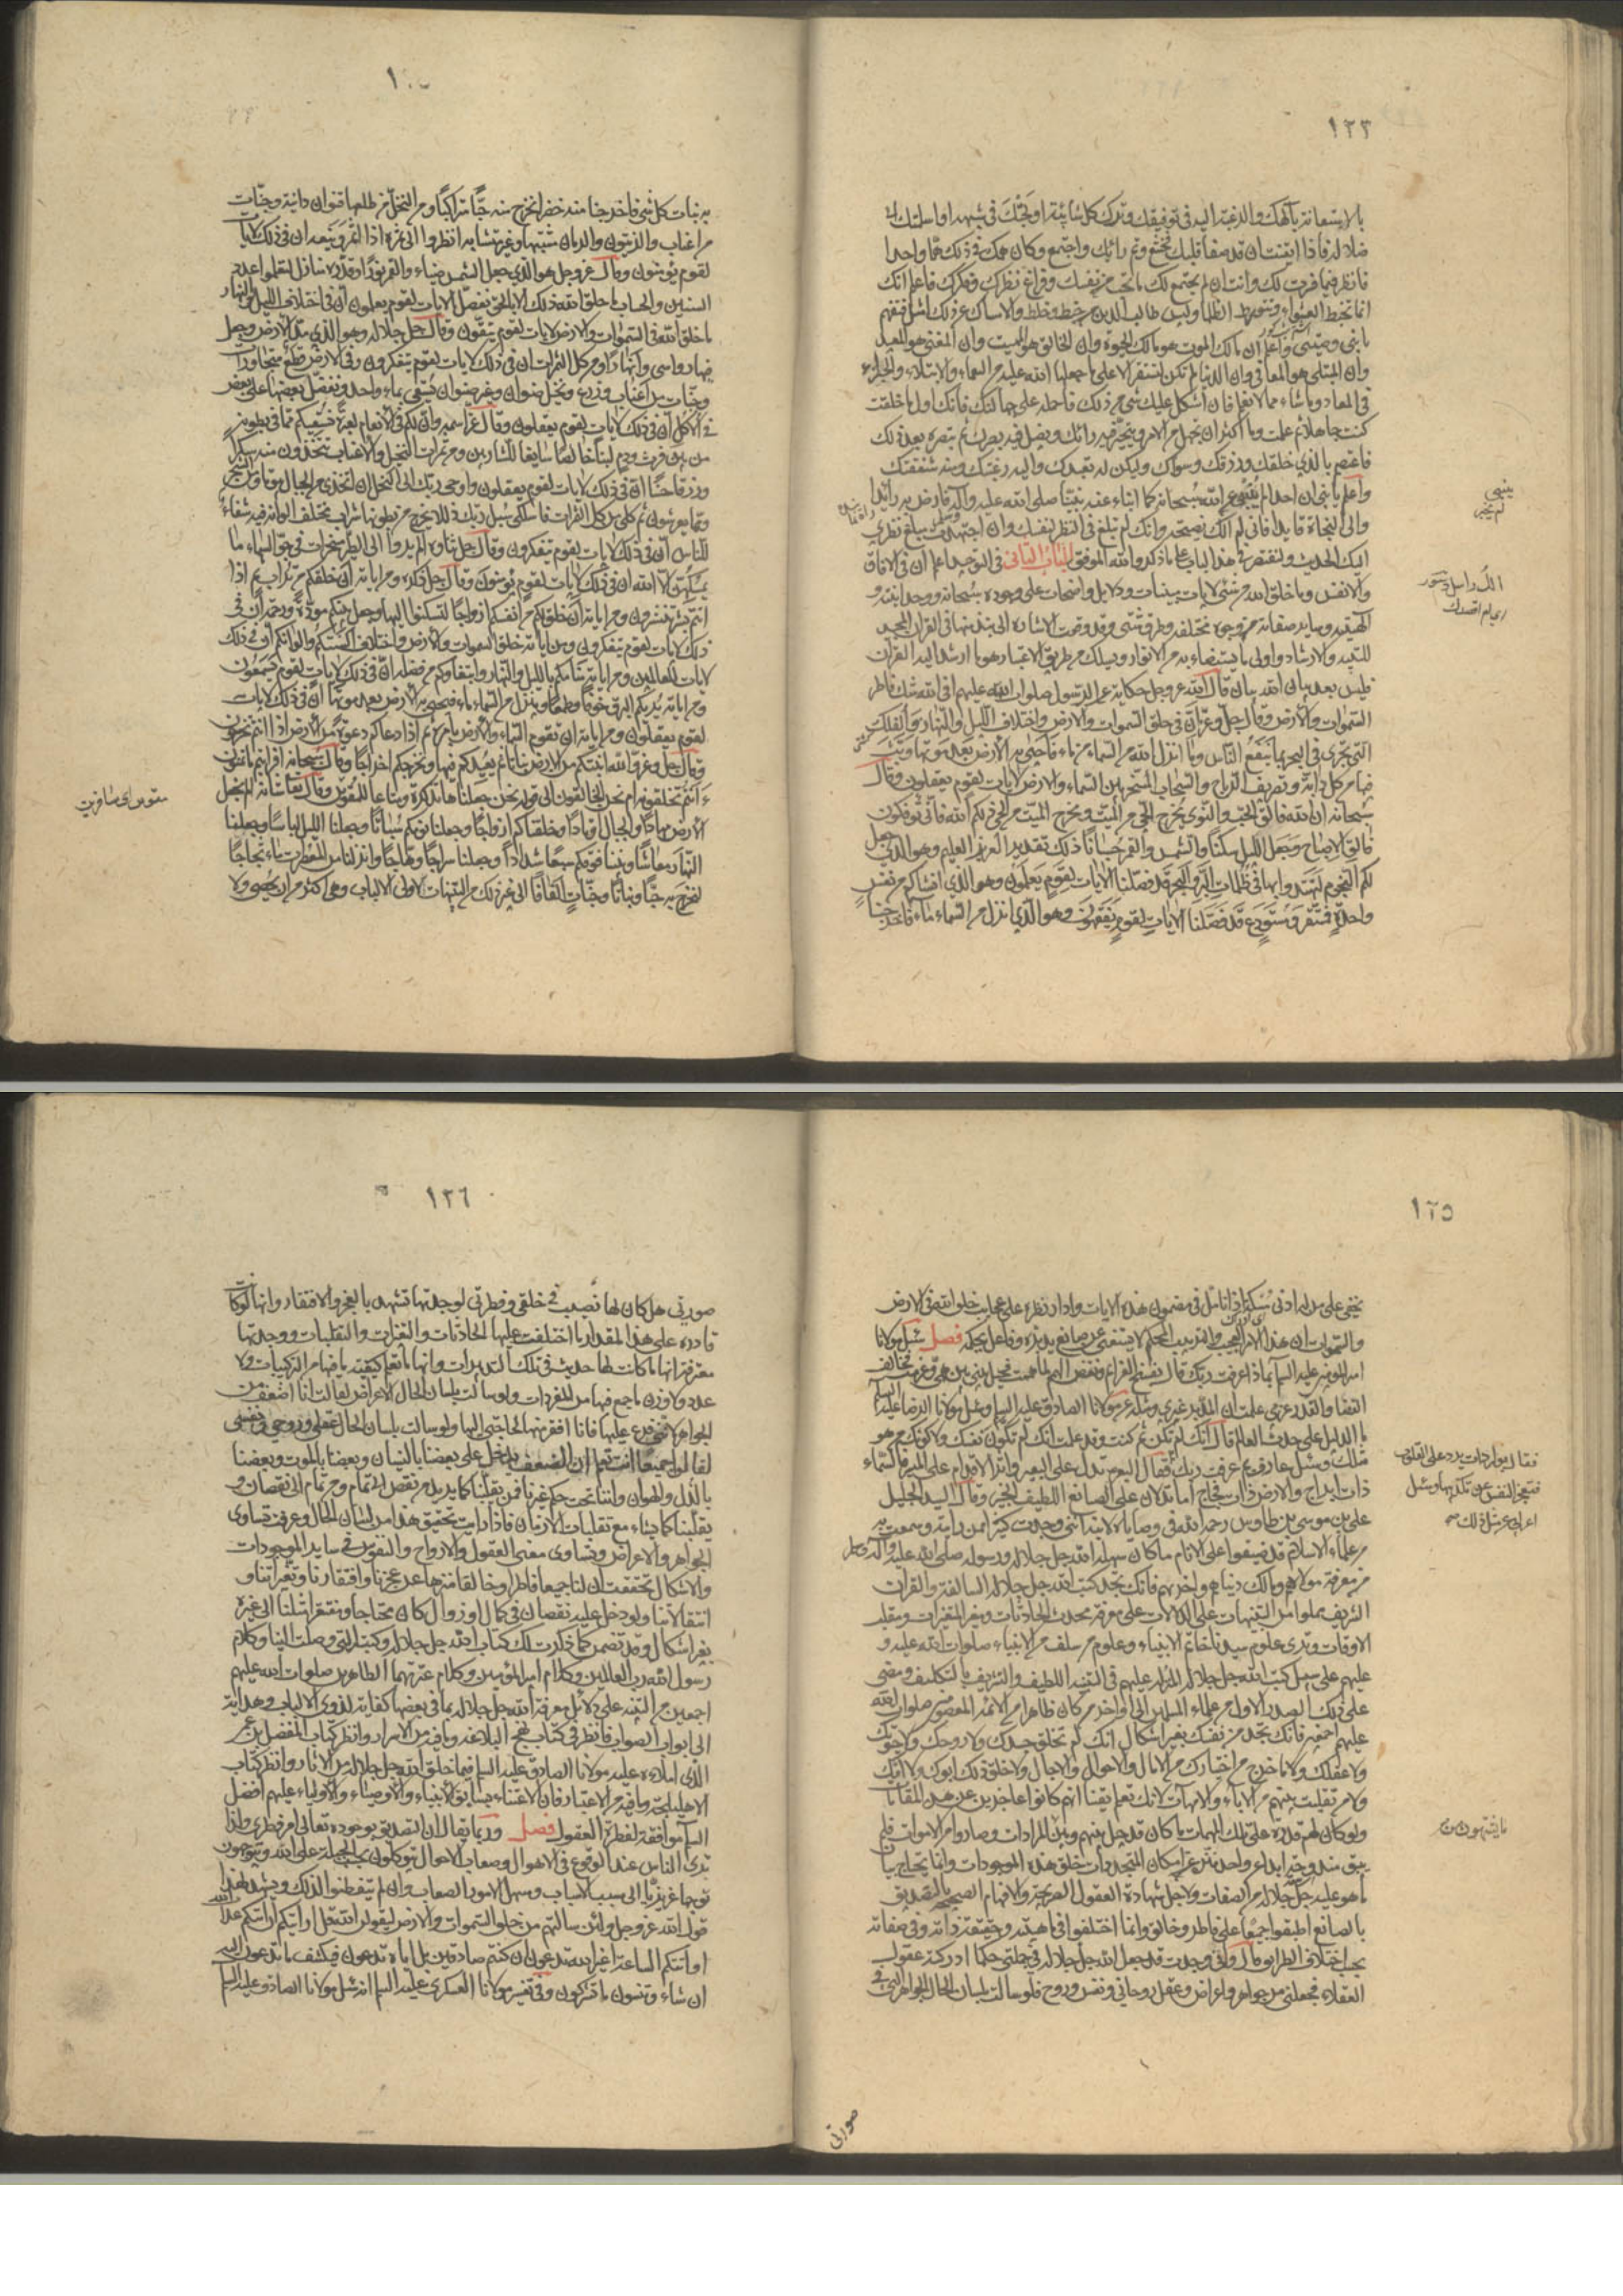 ١٢٣
بالاستعانة بآلهك والرغبة اليه فى توفيقك وترك كل شائبة اولجتك فى شبهة او اسلمتك الى
ضلالة فاذا ايقنت ان قد صفا قلبك فخشع وتم رائك واجتمع وكان همك فى ذلك هما واحدا
فانظر فيما فسرت لك وان انت لم يجتمع لك ما تحب من نفسك وفراغ نظرك وفكرك فاعلم انك
انما تخبط العشواء وتتورط الظلماء وليس طالب الدين من خبط وخلط والامساك عن ذلك امثل فتفهم
يا بنى وصيتى واعلم ان مالك الموت هو مالك الحيوة وان الخالق هو المميت وان المفنى هو المعيد
وان المبتلى هو المعافى وان الدنيا لم تكن لتستقر الا على ما جعلها الله عليه من النعماء والابتلاء والجزاء
فى المعاد وما شاء مما لا نعلم فان اشكل عليك شئ من ذلك فاحمله على جهالتك فانك اول ما خلقت
كنت جاهلا ثم علمت وما اكثر ان تجهل من الامر ويتحير فيه رائك ويضل فيه بصرك ثم تبصره بعد ذلك
فاعتصم بالذى خلقك ورزقك وسواك وليكن له تعبدك واليه رغبتك ومنه شفقتك
واعلم يا بنى ان احدا لم ينبئ عن الله سبحانه كما انباء عنه نبينا صلى الله عليه وآله فارض به رائدا
والى النجاة قايدا فانى لم آلك نصيحة وانك لم تبلغ فى النظر لنفسك وان اجتهدت مبلغ نظرى
لك الحديث ولنقتصر فى هذا الباب على ما ذكر والله الموفق الباب الثانى فى التوحيد اعلم ان فى الآفاق
والانفس وما خلق الله من شئ لآيات بينات ودلايل واضحات على وجوده سبحانه ووحدانيته و
آلهيته وساير صفاته من وجوه مختلفة وطرق شتى وقد وقعت الاشارة الى نبذ منها فى القرآن المجيد
للتنبيه والارشاد واولى ما يستضاء به من الانوار ويسلك من طريق الاعتبار هو ما ارشد اليه القرآن
فليس بعد بيان الله بيان قال الله عز وجل حكاية عن الرسول صلوات الله عليهم افى الله شك فاطر
السموات والارض وقال جل وعز ان فى خلق السموات والارض واختلاف الليل والنهار والفلك
التى تجرى فى البحر بما ينفع الناس وما انزل الله من السماء من ماء فاحيى به الارض بعد موتها وبث
فيها من كل دابة وتصريف الرياح والسحاب المسخر بين السماء والارض لآيات لقوم يعقلون وقال
سبحانه ان الله فالق الحب والنوى يخرج الحى من الميت ومخرج الميت من الحى ذلكم الله فانى تؤفكون
فالق الاصباح وجعل الليل سكنا والشمس والقمر حسبانا ذلك تقدير العزيز العليم وهو الذى جعل
لكم النجوم لتهتدوا بها فى ظلمات البر والبحر قد فصلنا الآيات لقوم يعلمون وهو الذى انشاكم من نفس
واحدة فمستقر ومستودع قد فصلنا الآيات لقوم يفقهون وهو الذى انزل من السماء ماء فاخرجنا
ينبى
لم يخبر
١٠
به نبات كل شئ فاخرجنا منه خضرا نخرج منه حبا متراكبا ومن النخل من طلعها قنوان دانية وجنات
من اعناب والزيتون والرمان مشتبها وغير متشابه انظروا الى ثمره اذا اثمر وينعه ان فى ذلك لآيات
لقوم يؤمنون وقال عز وجل هو الذى جعل الشمس ضياء والقمر نورا وقدره منازل لتعلموا عدد
السنين والحساب ما خلق الله ذلك الا بالحق يفصل الآيات لقوم يعلمون ان فى اختلاف الليل والنهار
وما خلق الله فى السموات والارض لآيات لقوم يتقون وقال جل جلاله وهو الذى مد الارض وجعل
فيها رواسى وانهارا ومن كل الثمرات ان فى ذلك لآيات لقوم يتفكرون وفى الارض قطع متجاورات
وجنات من اعناب وزرع ونخيل صنوان وغير صنوان يسقى بماء واحد ونفضل بعضها على بعض
فى الاكل ان فى ذلك لآيات لقوم يعقلون وقال عز اسمه وان لكم فى الانعام لعبرة نسقيكم مما فى بطونه
من بين فرث ودم لبنا خالصا سايغا للشاربين ومن ثمرات النخيل والاعناب تتخذون منه سكرا
ورزقا حسنا ان فى ذلك لآيات لقوم يعقلون واوحى ربك الى النحل ان اتخذى من الجبال بيوتا ومن الشجر
ومما يعرشون ثم كلى من كل الثمرات فاسلكى سبل ربك ذللا يخرج من بطونها شراب مختلف الوانه فيه شفاء
للناس ان فى ذلك لآيات لقوم يتفكرون وقال جل ثناؤه الم يروا الى الطير مسخرات فى جو السماء ما
يمسكهن الا الله ان فى ذلك لآيات لقوم يؤمنون وقال جل ذكره ومن آياته ان خلقكم من تراب ثم اذا
انتم بشر تنتشرون ومن آياته ان خلق لكم من انفسكم ازواجا لتسكنوا اليها وجعل بينكم مودة ورحمة ان فى
ذلك لآيات لقوم يتفكرون ومن آياته خلق السموات والارض واختلاف السنتكم والوانكم ان فى ذلك
لآيات للعالمين ومن آياته منامكم بالليل والنهار وابتغاؤكم من فضله ان فى ذلك لآيات لقوم يسمعون
ومن آياته يريكم البرق خوفا وطمعا وينزل من السماء ماء فيحيى به الارض بعد موتها ان فى ذلك لآيات
لقوم يعقلون ومن آياته ان تقوم السماء والارض بامره ثم اذا دعاكم دعوة من الارض اذا انتم تخرجون
وقال جل وعز والله انبتكم من الارض نباتا ثم يعيدكم فيها ويخرجكم اخراجا وقال سبحانه افرايتم ما تمنون
ءانتم تخلقونه ام نحن الخالقون الى قوله نحن جعلناها تذكرة ومتاعا للمقوين وقال تعالى شانه الم نجعل
الارض مهادا والجبال اوتادا وخلقناكم ازواجا وجعلنا نومكم سباتا وجعلنا الليل لباسا وجعلنا
النهار معاشا وبنينا فوقكم سبعا شدادا وجعلنا سراجا وهاجا وانزلنا من المعصرات ماء ثجاجا
لنخرج به حبا ونباتا وجنات الفافا الى غير ذلك من التنبيهات لاولى الالباب وهى اكثر من ان يحصى ولا
مقوين اى مسافرين
١٢٥
يخفى على من له ادنى مسكة اذا تامل فى مضمون هذه الآيات وادار نظره على عجايب خلق الله فى الارض
والسموات ان هذا الامر العجيب والترتيب المحكم لا يستغنى عن صانع يدبره وفاعل يحكمه فصل سئل مولانا
امير المؤمنين عليه السلام بماذا عرفت ربك قال بفسخ العزائم ونقض الهمم لما هممت فحيل بينى وبين همى وعزمت فخالف
القضا والقدر عزمى علمت ان المدبر غيرى ومثله عن مولانا الصادق عليه السلام وسئل مولانا الرضا عليه السلام
ما الدليل على حدث العالم قال انك لم تكن ثم كنت وقد علمت انك لم تكون نفسك ولا كونك من هو
مثلك وسئل عارف بم عرفت ربك فقال البعرة تدل على البعير واثر الاقدام على المسير فالسماء
ذات ابراج والارض ذات فجاج اما تدلان على الصانع اللطيف الخبير وقال السيد الجليل
على بن موسى بن طاوس رحمه الله فى وصاياه لابنه اننى وجدت كثيرا ممن رايته وسمعت به
من علماء الاسلام قد ضيقوا على الانام ما كان سهله الله جل جلاله ورسوله صلى الله عليه وآله
من معرفة مولاهم ومالك دنياهم واخراهم فانك تجد كتب الله جل جلاله السالفة والقرآن
الشريف مملوا من التنبيهات على الدلالات على معرفة محدث الحادثات ومغير المتغيرات ومقلب
الاوقات وترى علوم سيدنا خاتم الانبياء وعلوم من سلف من الانبياء صلوات الله عليه و
عليهم على سبيل كتب الله جل جلاله المنزلة عليهم فى التنبيه اللطيف والتشريف بالتكليف ومضى
على ذلك الصدر الاول من علماء المسلمين الى اواخر من كان ظاهرا من الائمة المعصومين صلوات الله
عليهم اجمعين فانك تجد من نفسك بغير اشكال انك لم تخلق جسدك ولا روحك ولا حيوتك
ولا عقلك ولا ما خرج من اختيارك من الآمال والاحوال والآجال ولا خلق ذلك ابوك ولا امك
ولا من تقلبت بينهم من الآباء والامهات لانك تعلم يقينا انهم كانوا عاجزين عن هذه المقامات
ولو كان لهم قدرة على تلك المهمات ما كان قد حيل بينهم وبين المرادات وصاروا من الاموات فلم
يبق مندوحة ابدا عن واحد منزه عن امكان المتجددات خلق هذه الموجودات وانما يحتاج
ما هو عليه جل جلاله من الصفات ولاجل شهادة العقول الصريحة والافهام الصحيحة بالتصديق
بالصانع اطبقوا جميعا على فاطر وخالق وانما اختلفوا فى ماهيته وحقيقة ذاته وفى صفاته
بحسب اختلاف الطرايق قال وانى وجدت قد جعل الله جل جلاله فى جملتى حكما ادركته عقول
العقلاء فجعلنى من جواهر واعراض وعقل روحانى ونفس وروح فلو سالت بلسان الحال الجواهر التى فى
فقال بواردات يرد على القلوب
فتعجز النفس عن تكذيبها وسئل
اعرابى عن مثل ذلك
صورتى
١٢٦
صورتى هل كان لها نصيب فى خلقى وفطرتى لوجدتها تشهد بالعجز والافتقار وانها لو كانت
قادرة على هذا المقدار ما اختلفت عليها الحادثات والتغيرات والتقلبات ووجدتها
معترفة انها ما كان لها حديث فى تلك التدبيرات وانها ما تعلم كيفية ما فيها من التركيبات ولا
عدد ولا وزن ما جمع فيها من المفردات ولو سالت بلسان الحال الاعراض لقالت انا اضعف من
الجواهر لاننى فرع عليها فانا افقر منها لحاجتى اليها ولو سالت بلسان الحال عقلى وروحى ونفسى
لقالوا جميعا انت تعلم ان الضعف يدخل على بعضنا بالنسيان وبعضنا بالموت وبعضنا
بالذل والهوان واننا تحت حكم غيرنا ممن يقلبنا كما يريد من نقص الى تمام ومن تمام الى نقصان و
يقلبنا كما يشاء مع تقلبات الازمان فاذا رايت تحقيق هذا من لسان الحال وعرفت تساوى
الجواهر والاعراض وتساوى معنى العقول والارواح والنفوس فى ساير الموجودات
والاشكال تحققت ان لنا جميعا فاطرا وخالقا منزها عن عجزنا وافتقارنا وتغيراتنا و
انتقالاتنا ولو دخل عليه نقصان فى كمال او زوال كان محتاجا ومفتقرا مثلنا الى غيره
بغير اشكال وقد تضمن كما ذكرت لك كتاب الله جل جلاله وكتبه التى وصلت الينا وكلام
رسول الله رب العالمين وكلام امير المؤمنين وكلام عترتهما الطاهرين صلوات الله عليهم
اجمعين من التنبيه على دلائل معرفة الله جل جلاله بما فى بعضها كفاية لذوى الالباب وهداية
الى ابواب الصواب فانظر فى كتاب نهج البلاغه وما فيه من الاسرار وانظر كتاب المفضل بن عمر
الذى املاه عليه مولانا الصادق عليه السلام فيما خلق الله جل جلاله من الآثار وانظر كتاب
الاهليلجة وما فيه من الاعتبار فان الاعتناء بسابق الانبياء والاوصياء والاولياء عليهم افضل
السلام موافقة لفطرة العقول فصل وربما يقال ان التصديق بوجوده تعالى امر فطرى ولذا
ترى الناس عند الوقوع فى الاهوال وصعاب الاحوال يتوكلون بحسب الجبلة على الله ويتوجهون
توجها غريزيا الى مسبب الاسباب ومسهل الامور الصعاب وان لم يتفطنوا لذلك ويشهد لهذا
قول الله عز وجل ولئن سالتهم من خلق السموات والارض ليقولن الله قل ارأيتكم ان اتيكم عذاب الله
او اتتكم الساعة اغير الله تدعون ان كنتم صادقين بل اياه تدعون فيكشف ما تدعون اليه
ان شاء وتنسون ما تشركون وفى تفسير مولانا العسكرى عليه السلام انه سئل مولانا الصادق عليه السلام